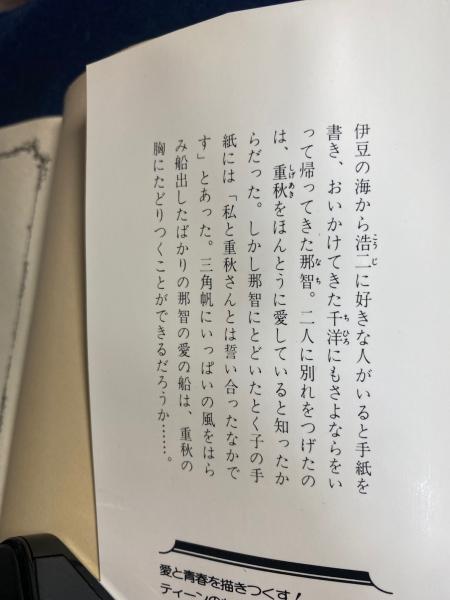 伊豆の海から浩二に好きな人がいると手紙を
書き、おいかけてきた千洋にもさよならをい
って帰ってきた那智。二人に別れをつげたの
は、重秋をほんとうに愛していると知ったか
らだった。しかし那智にとどいたとく子の手
紙には「私と重秋さんとは誓い合ったなかで
す」とあった。三角帆にいっぱいの風をはら
み船出したばかりの那智の愛の船は、重秋の
胸にたどりつくことができるだろうか……。
愛と青春を描きつくす!
ティーンの